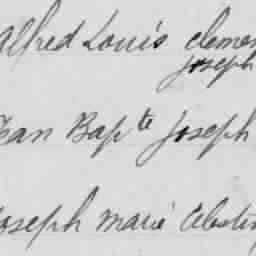 Alfred Louis clemen
joseph
Jean Bapte joseph
joseph marie Celestin